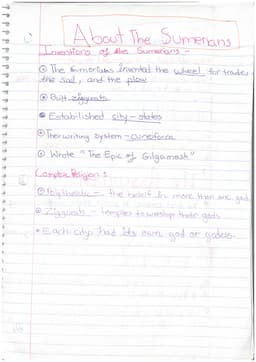 About The Sumerians
Inventions of the Sumerians -
The Sumerians invented the wheel for trade,
the sail, and the plow
Built ziggurats
Established city-states
Their writing system - cuneiform
Wrote "The Epic of Gilgamesh"
Complex Religion:
Polytheistic - the belief in more than one god
Ziggurats - temples to worship those gods
Each city had its own god or godess.